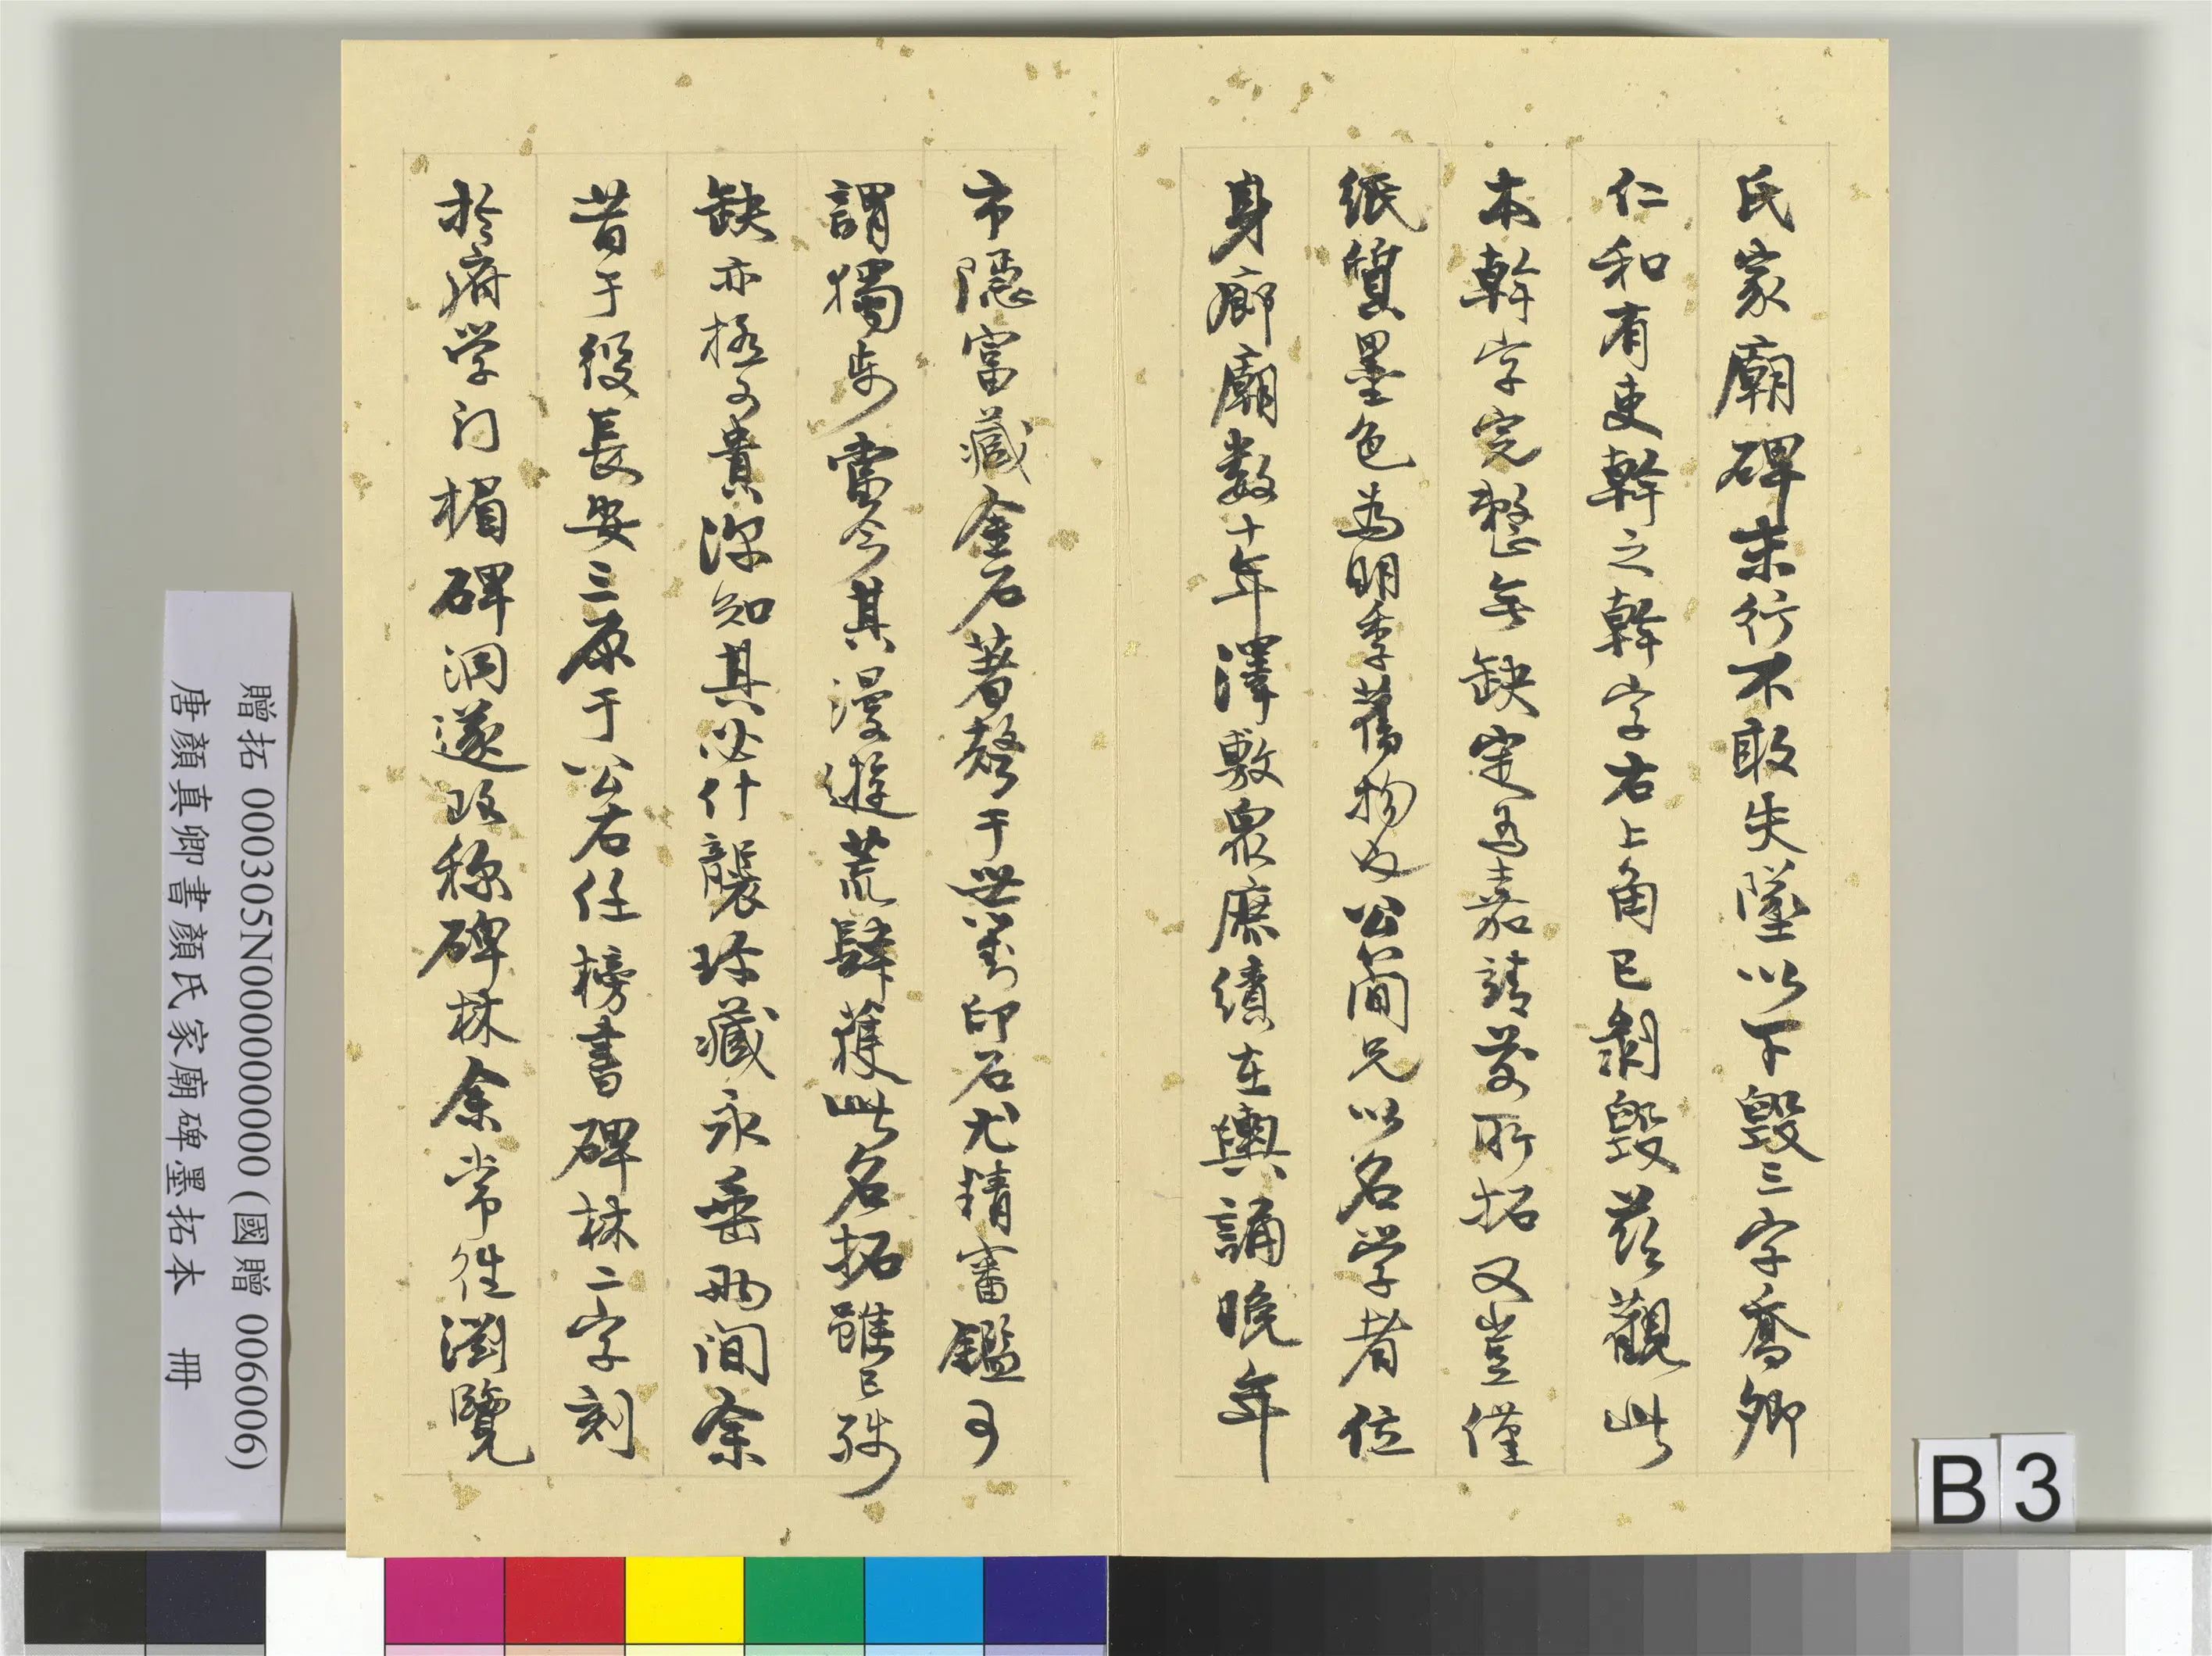 氏家廟碑末行不敢失墜以下毀三字喬卿
仁和有吏幹之幹字右上角已剝毀茲觀此
本幹字完整無缺定為嘉靖前所拓又豈僅
紙質墨色為明季舊物也公蘭兄以名學者位
身廊廟數十年澤敷眾庶績在輿誦晚年
市隱富藏金石著聲于世篆印石尤精審鑑可
謂獨步當今其漫遊荒肆獲此名拓雖已殘
缺亦極可貴深知其必什襲珍藏永垂兩間余
昔于役長安三原于公右任榜書碑林二字刻
於府學門楣碑洞遂改稱碑林余常往瀏覽
贈拓 000305N000000000 (國贈 006006)
唐顏真卿書顏氏家廟碑墨拓本 冊
B 3